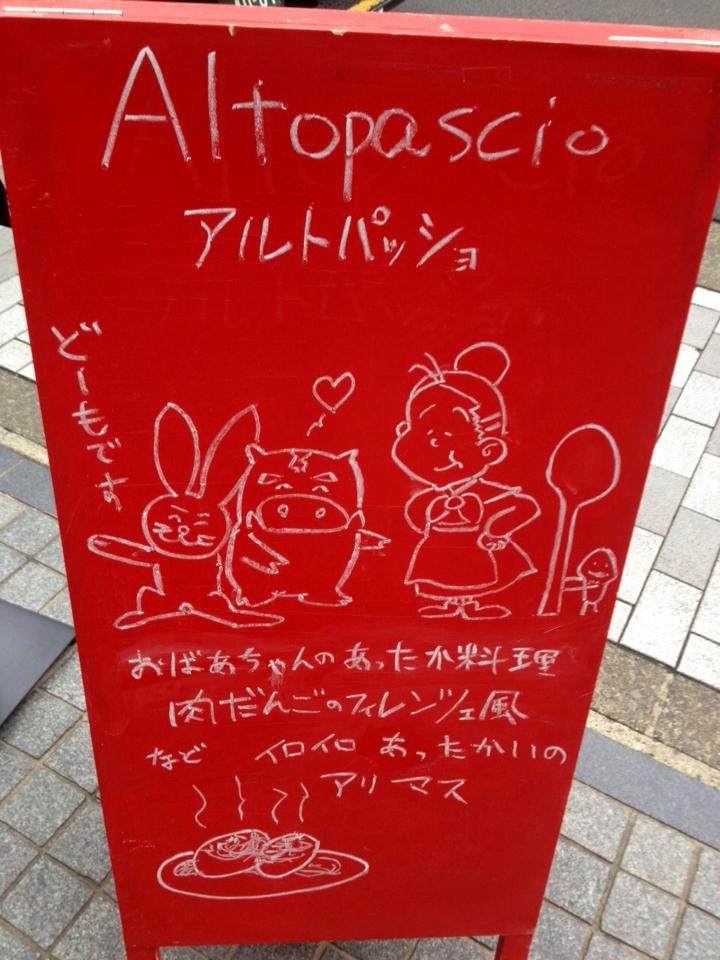 Altopascio
アルトパッショ
どーもです
おばあちゃんのあったか料理
肉だんごのフィレンツェ風
など イロイロ あったかいの
アリマス